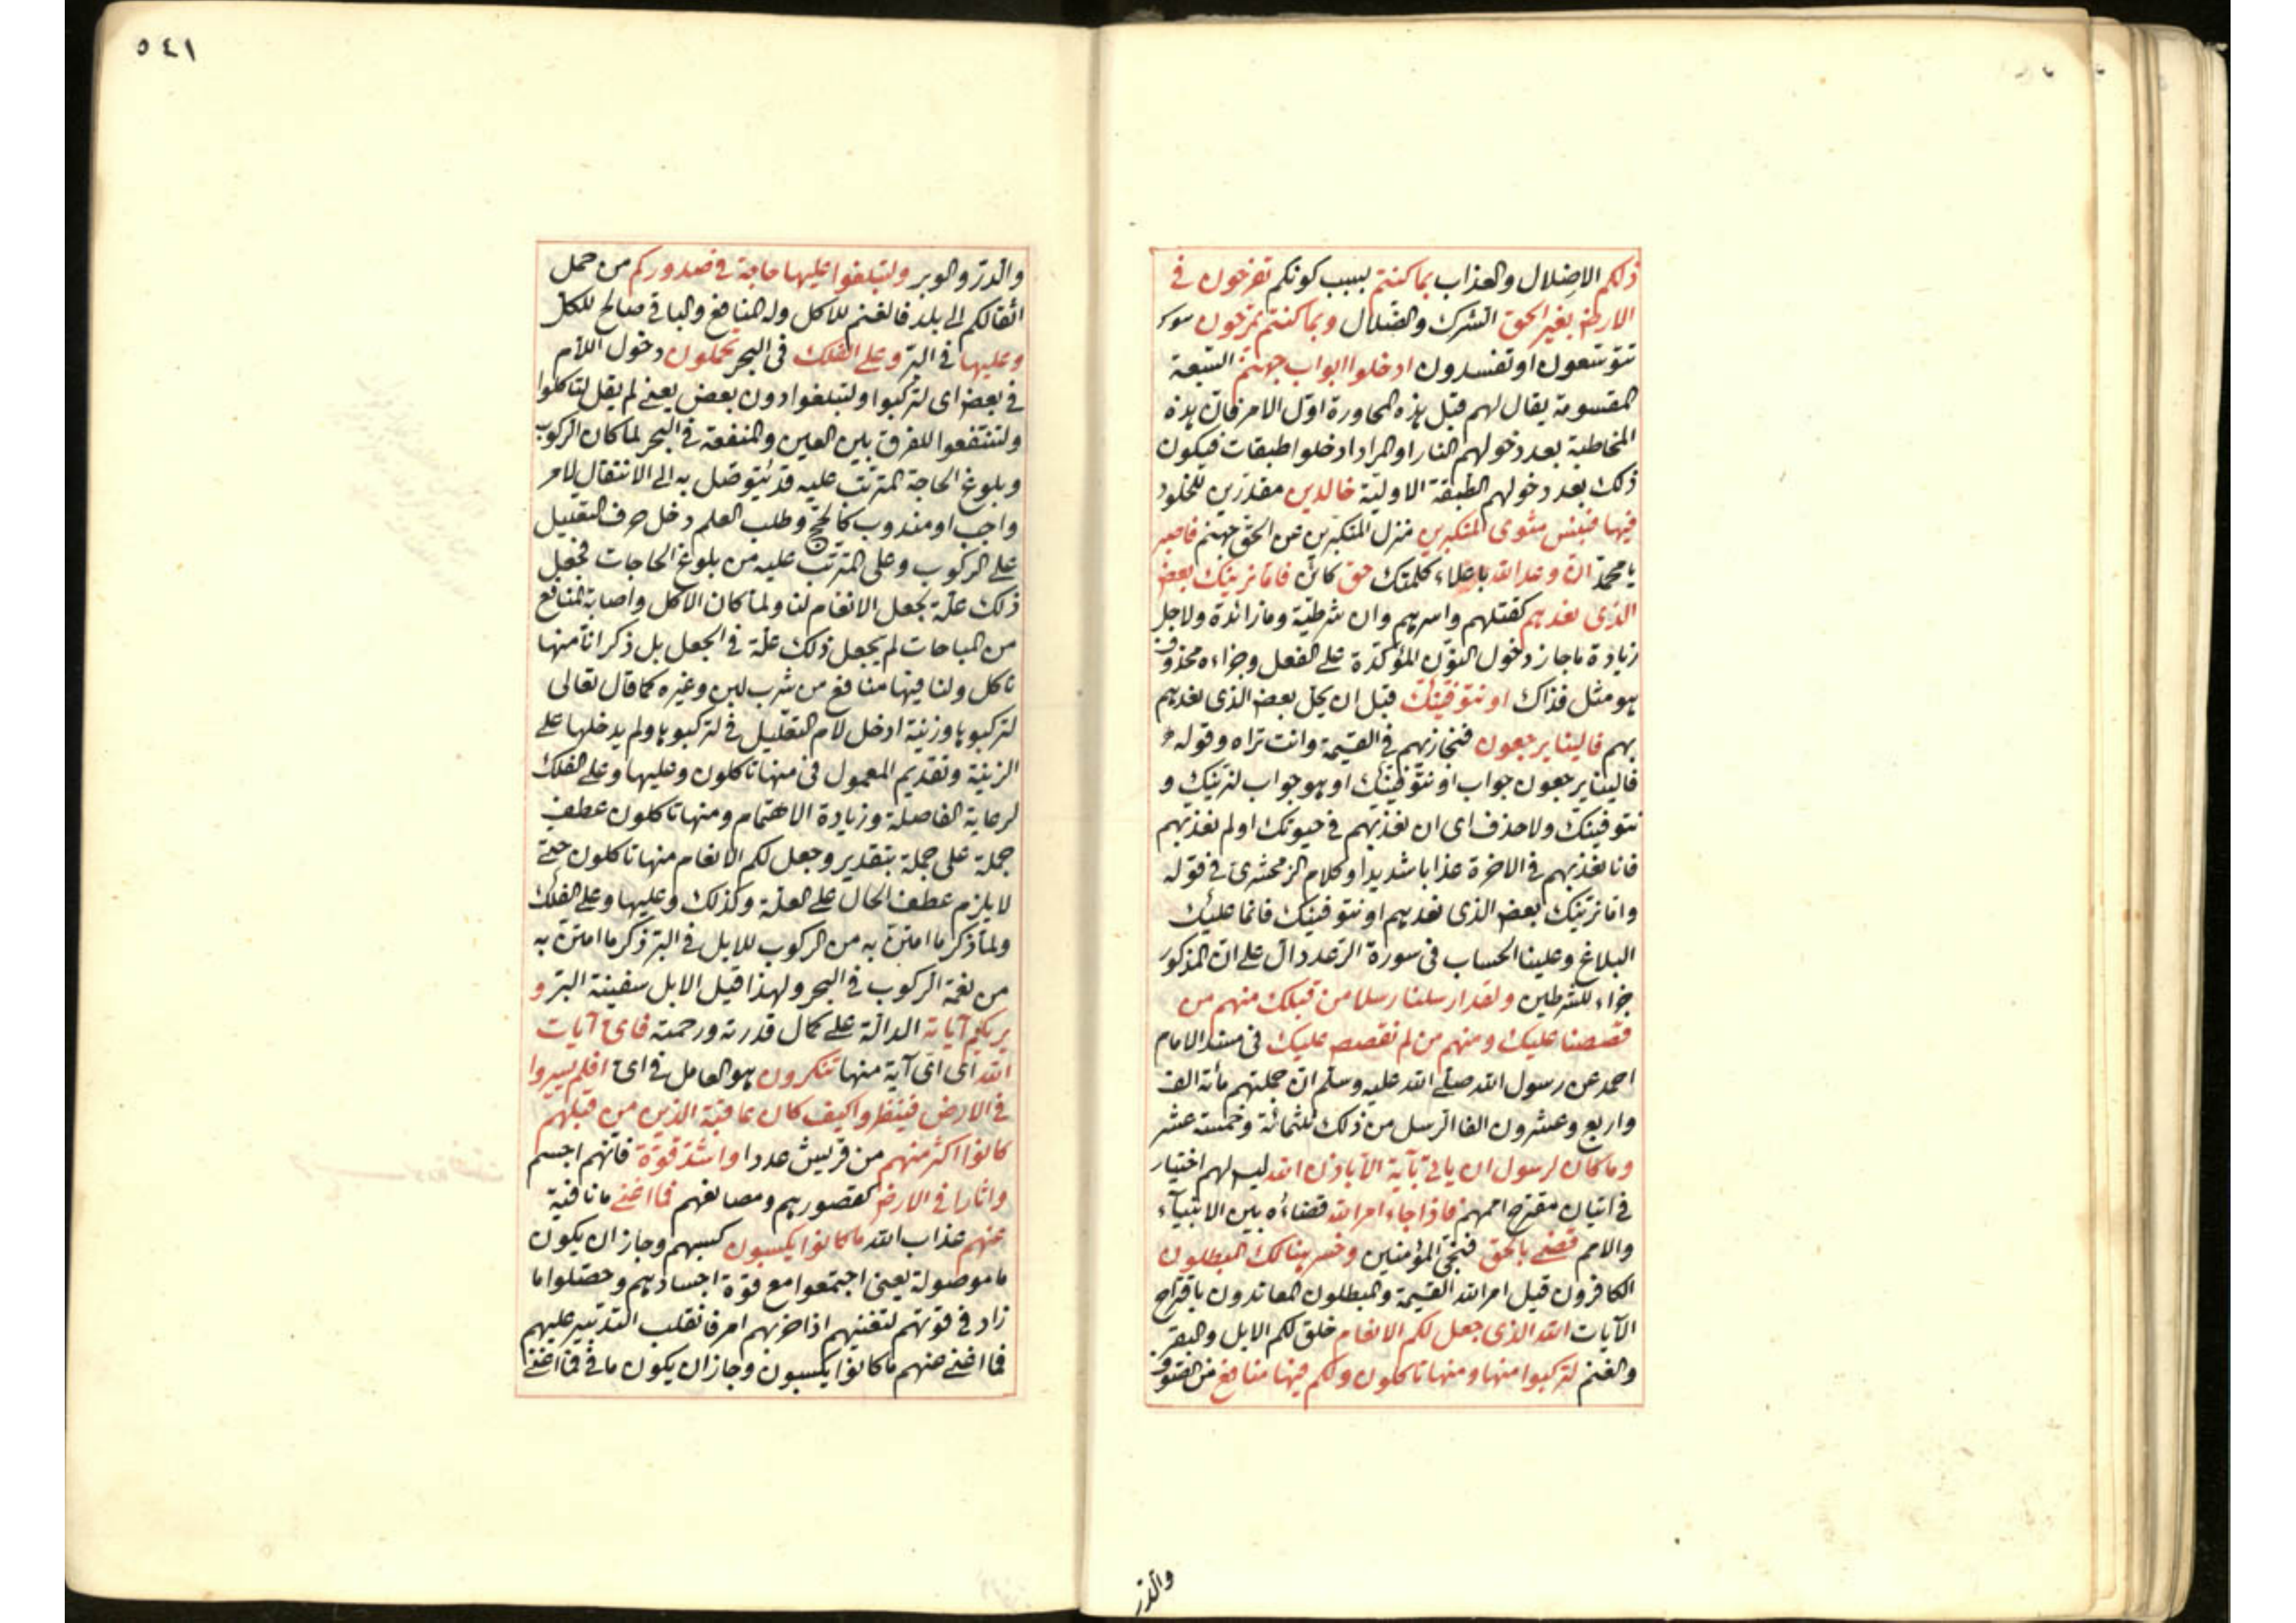 ذلكم الاضلال والعذاب بما كنتم بسبب كونكم تفرحون في
الارض بغير الحق الشرك والضلال وبما كنتم تمرحون
تتوسعون او تفسدون ادخلوا ابواب جهنم السبعة
المقسومة يقال لهم قبل هذه المحاورة اول الامر فان هذه
المخاطبة بعد دخولهم النار او المراد ادخلوا طبقات فيكون
ذلك بعد دخولهم الطبقة الاولية خالدين مقدرين للخلود
فيها فبئس مثوى المتكبرين منزل المتكبرين عن الحق جهنم فاصبر
يا محمد ان وعد الله باعلاء كلمتك حق كائن فاما نرينك بعض
الذى نعدهم كقتلهم واسرهم وان شرطية وما زائدة ولاجل
زيادة ما جاز دخول النون المؤكدة على الفعل وجزاءه محذوف
هو مثل فذاك او نتوفينك قبل ان يحل بعض الذى نعدهم
بهم فالينا يرجعون فنجازيهم في القيمة وانت تراه وقوله
فالينا يرجعون جواب او نتوفينك او هو جواب لنرينك و
نتوفينك ولا حذف اى ان نعذبهم في حيوتك او لم نعذبهم
فانا نعذبهم في الاخرة عذابا شديدا وكلام الزمخشرى في قوله
واما نرينك بعض الذى نعدهم او نتوفينك فانما عليك
البلاغ وعلينا الحساب فى سورة الرعد دال على ان المذكور
جزاء للشرطين ولقد ارسلنا رسلا من قبلك منهم من
قصصنا عليك ومنهم من لم نقصص عليك فى مسند الامام
احمد عن رسول الله صلى الله عليه وسلم ان جملتهم مأته الف
واربع وعشرون الفا الرسل من ذلك ثلثمائة وخمسة عشر
وما كان لرسول ان ياتى بآية الا باذن الله ليس لهم اختيار
في اتيان مقترح اممهم فاذا جاء امر الله قضاءه بين الانبياء
والامم قضى بالحق فنجى المؤمنين وخسر هنالك المبطلون
الكافرون قيل امر الله القيمة والمبطلون المعاندون باقتراح
الآيات الله الذى جعل لكم الانعام خلق لكم الابل والبقر
والغنم لتركبوا منها ومنها تاكلون ولكم فيها منافع من الصوف
والدر
٥٤١
والدر والوبر ولتبلغوا عليها حاجة في صدوركم من حمل
اثقالكم الى بلد فالغنم للاكل وله المنافع والباقي صالح للكل
وعليها في البر وعلى الفلك فى البحر تحملون دخول اللام
في بعض اى لتركبوا ولتبلغوا دون بعض يعنى لم يقل لتاكلوا
ولتنتفعوا للفرق بين العين والمنفعة في البحر لما كان الركوب
وبلوغ الحاجة المترتب عليه قد يتوصل به الى الانتقال لامر
واجب او مندوب كالحج وطلب العلم دخل حرف التعليل
على الركوب وعلى المترتب عليه من بلوغ الحاجات فجعل
ذلك علة لجعل الانعام لنا ولما كان الاكل واصابة المنافع
من المباحات لم يجعل ذلك علة في الجعل بل ذكر انا منها
ناكل ولنا فيها منافع من شرب لبن وغيره كما قال تعالى
لتركبوها وزينة ادخل لام التعليل في لتركبوها ولم يدخلها على
الزينة وتقديم المعمول فى منها تاكلون وعليها وعلى الفلك
لرعاية الفاصلة وزيادة الاهتمام ومنها تاكلون عطف
جملة على جملة بتقدير وجعل لكم الانعام منها تاكلون حتى
لا يلزم عطف الحال على العلة وكذلك وعليها وعلى الفلك
ولما ذكر ما امتن به من الركوب للابل في البر ذكر ما امتن به
من نعمة الركوب في البحر ولهذا قيل الابل سفينة البر و
يريكم آياته الدالة على كمال قدرته ورحمته فاى آيات
الله اى اى آية منها تنكرون هو العامل في اى افلم يسيروا
في الارض فينظروا كيف كان عاقبة الذين من قبلهم
كانوا اكثر منهم من قريش عددا واشد قوة فانهم اجسم
واثارا في الارض كقصورهم ومصانعهم فما اغنى ما نافية
عنهم عذاب الله ما كانوا يكسبون كسبهم وجاز ان يكون
ما موصولة يعنى اجتمعوا مع قوة اجسادهم وحصلوا ما
زاد في قوتهم لتغنيهم اذا حزبهم امر فانقلب التدبير عليهم
فما اغنى عنهم ما كانوا يكسبون وجاز ان يكون ما في فما اغنى